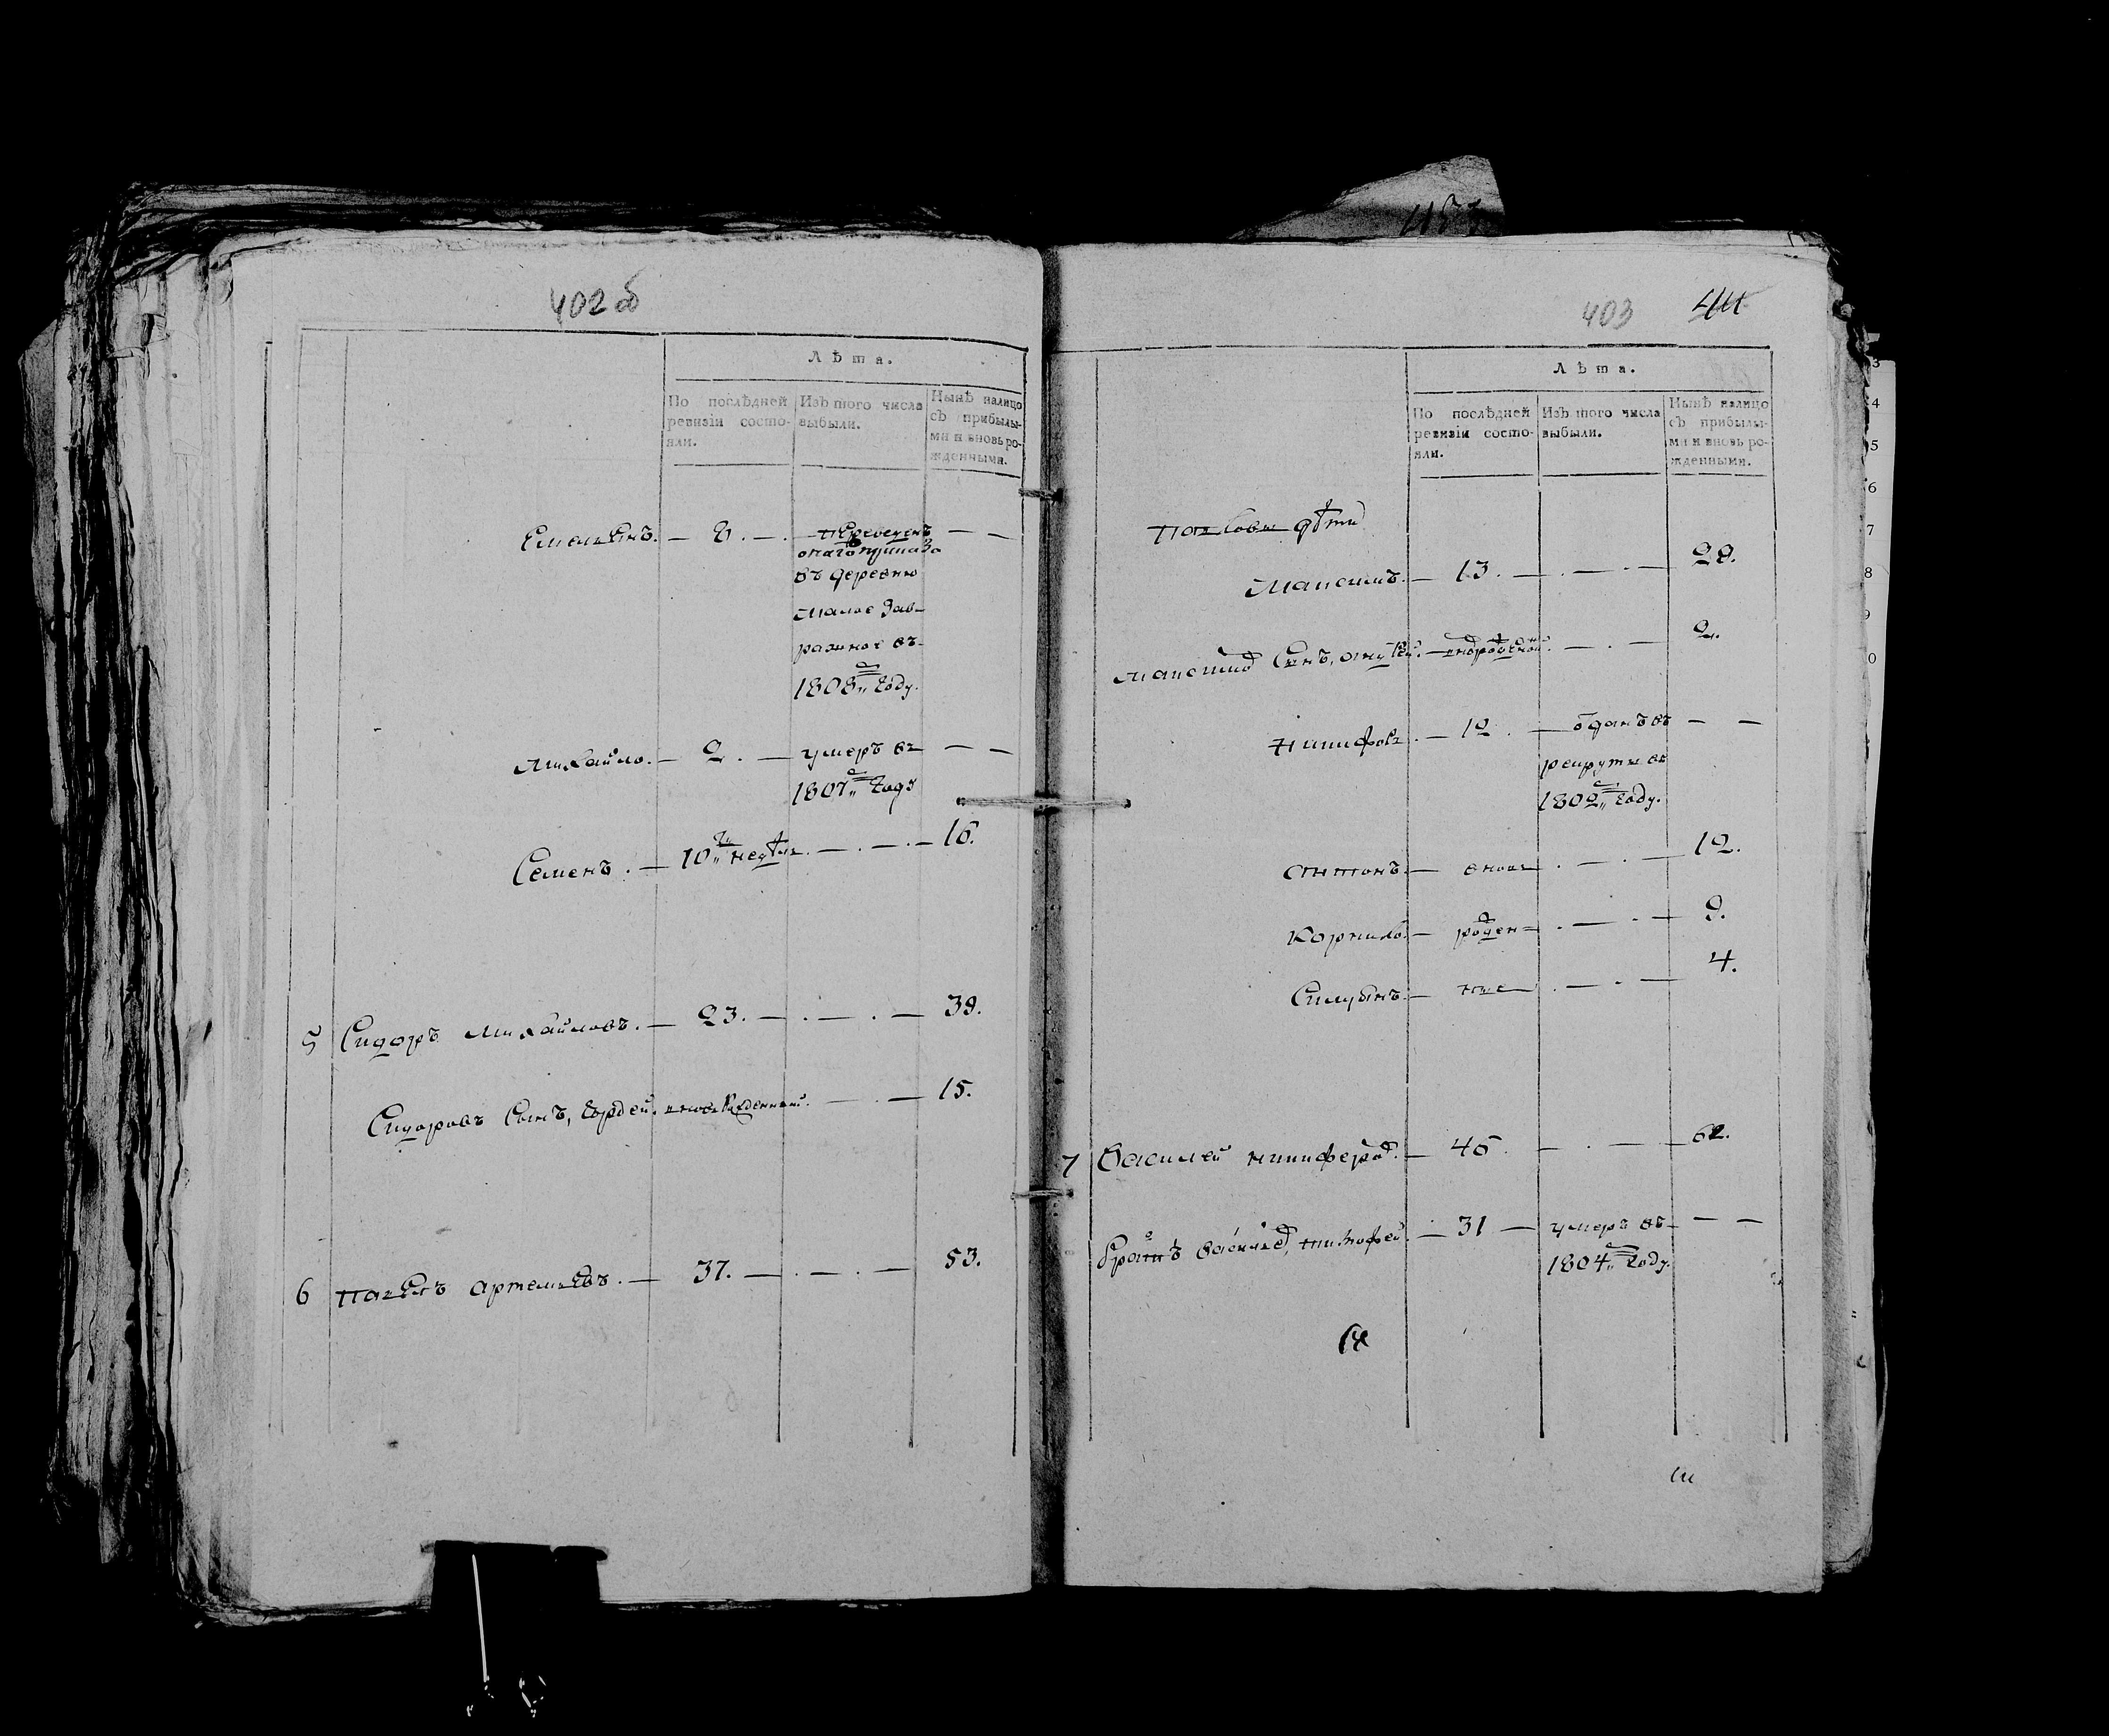 402об
Лѣта.
По послѣдней ревизіи состояли.
Изъ того числа выбыли.
Нынѣ налицо съ прибылыми и вновь рожденными.
Емельянъ. — 8. — переведенъ — —
въ деревню
малое Зав-
ражное въ
1808м году.
Михайло. — 2. — умеръ въ — —
1807м году
Семенъ. — 10ти недѣль. — . — . — 16.
5 Сидоръ Михайловъ. — 23. — . — . — 39.
Сидоровъ сынъ, Гордей. вновь рожденный. — . — 15.
6 Павелъ Артемьевъ. — 37. — . — . — 53.
403
Лѣта.
По послѣдней ревизіи состояли.
Изъ того числа выбыли.
Нынѣ налицо съ прибылыми и вновь рожденными.
Павловы дѣти
Максимъ. — 13. — . — . — 29.
Максимов сынъ, — . — 2.
Никифоръ. — 12. — отданъ въ — —
рекруты въ
1802м году.
Антонъ. — вновь . — . — 12.
Корнило. — рожден= . — . — 9.
— ные . — . — 4.
7 Василей Никифоров. — 46. — . — 62.
братъ Васильев, Тимофей. — 31 — умеръ въ — —
1804м году.